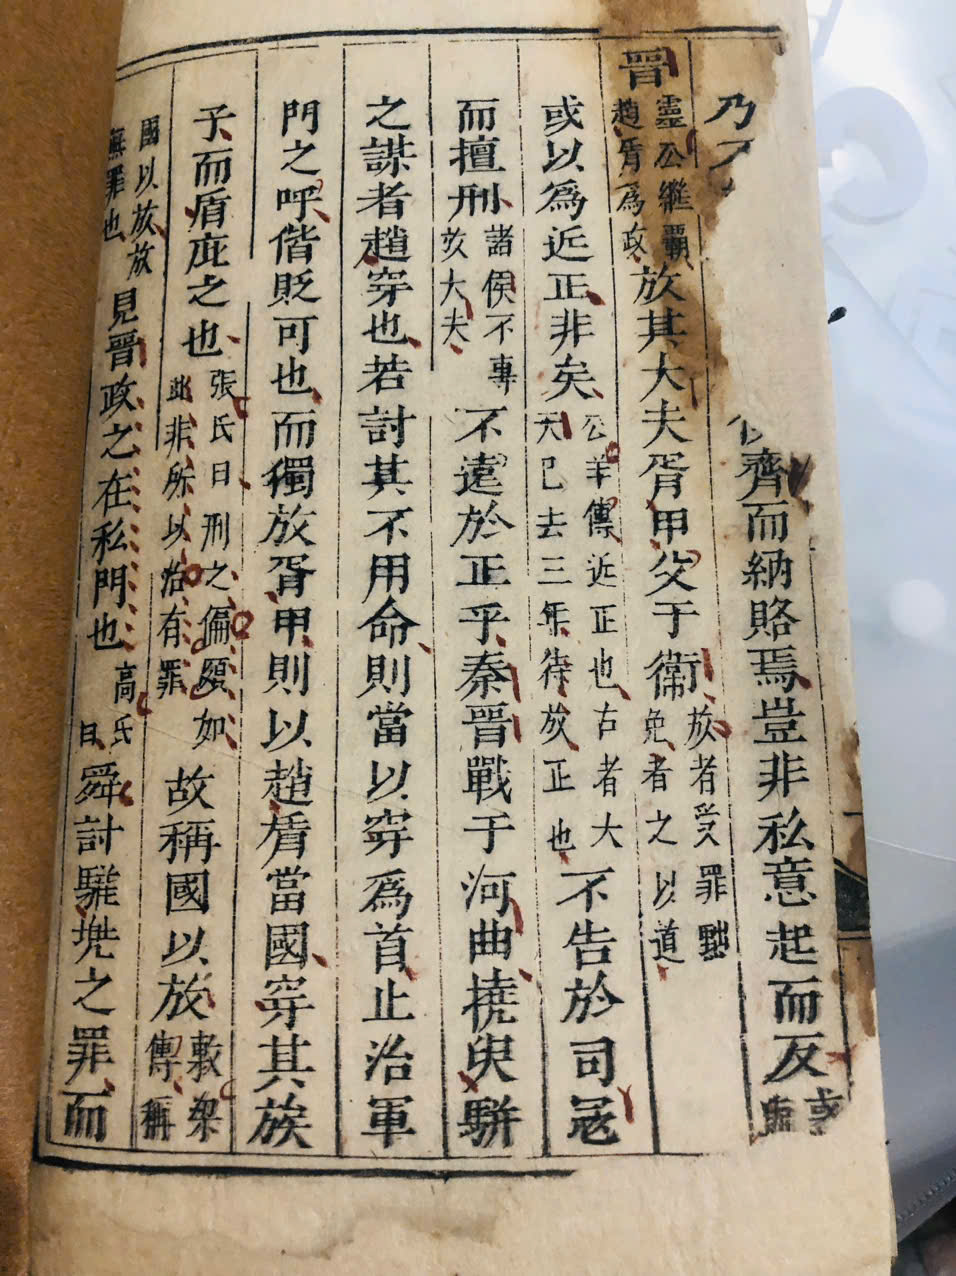 乃
齊而納賂焉豈非私意起而反
晉靈公繼霸趙盾爲政放其大夫胥甲父于衛放者受罪黜免者之以道
或以爲近正非矣公羊傳近正也古者大夫已去三年待放正也不告於司冦
而擅刑諸侯不專放大夫不遠於正乎秦晉戰于河曲撓臾駢
之謀者趙穿也若討其不用命則當以穿爲首止治軍
門之呼偕貶可也而獨放胥甲則以趙盾當國穿其族
子而盾庇之也張氏曰刑之偏頗如此非所以治有罪故稱國以放榖梁傳稱
國以放放無罪也見晉政之在私門也高氏曰舜討驩兠之罪而